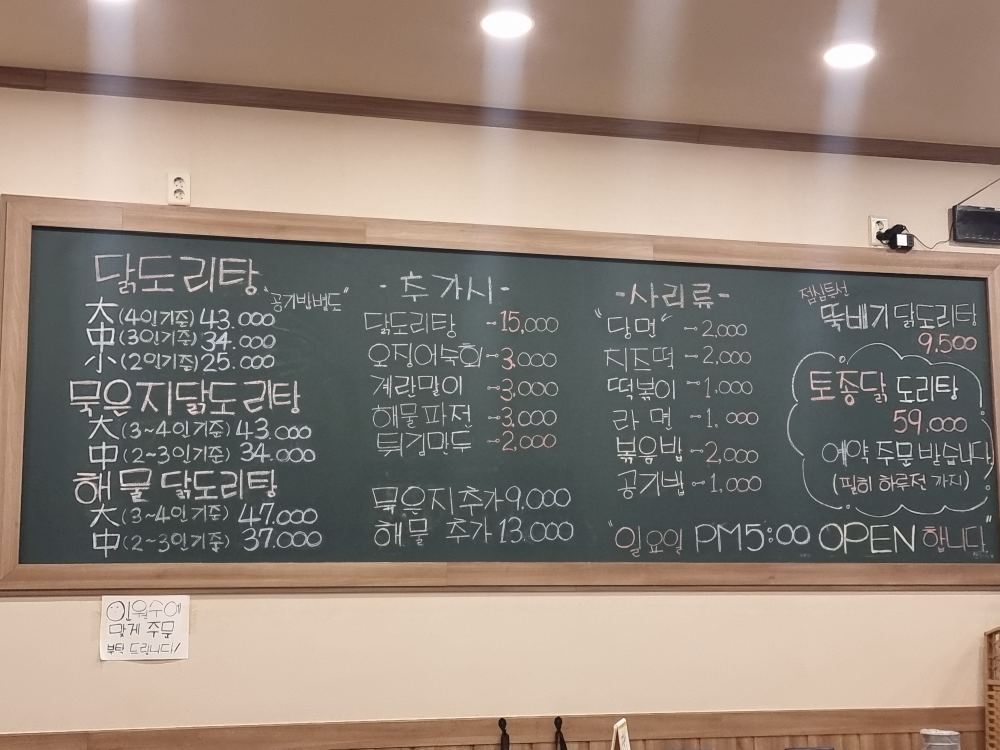 닭도리탕
"공기밥별도"
大 (4인기준) 43.000
中 (3인기준) 34.000
小 (2인기준) 25.000
묵은지닭도리탕
大 (3~4인기준) 43.000
中 (2~3인기준) 34.000
해물닭도리탕
大 (3~4인기준) 47.000
中 (2~3인기준) 37.000
-추가시-
닭도리탕 -15,000
오징어숙회 -3,000
계란말이 -3,000
해물파전 -3,000
튀김만두 -2,000
묵은지추가 9.000
해물 추가 13.000
-사리류-
"당면" -2,000
치즈떡 -2,000
떡볶이 -1,000
라면 -1,000
볶음밥 -2,000
공기밥 -1,000
점심특선
뚝배기닭도리탕
9.500
토종닭 도리탕
59.000
예약 주문 받습니다
(필히 하루전 까지)
"일요일 PM5:00 OPEN 합니다"
인원수에
맞게 주문
부탁 드립니다!